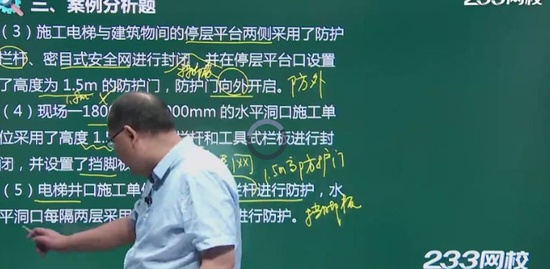 三、案例分析题
233网校
（3）施工电梯与建筑物间的停层平台两侧采用了防护
栏杆、密目式安全网进行封闭，并在停层平台口设置
挡脚板
了高度为 1.5m 的防护门，防护门向外开启。防外
1.8m ×
（4）现场一1800 000mm 的水平洞口施工单
位采用了高度 1. 栏杆和工具式栏板进行封
闭，并设置了挡脚板 [xx] 1.5m高防护门
（5）电梯井口施工单位 栏杆进行防护，水
平洞口每隔两层采用 进行防护。挡脚板
233网校